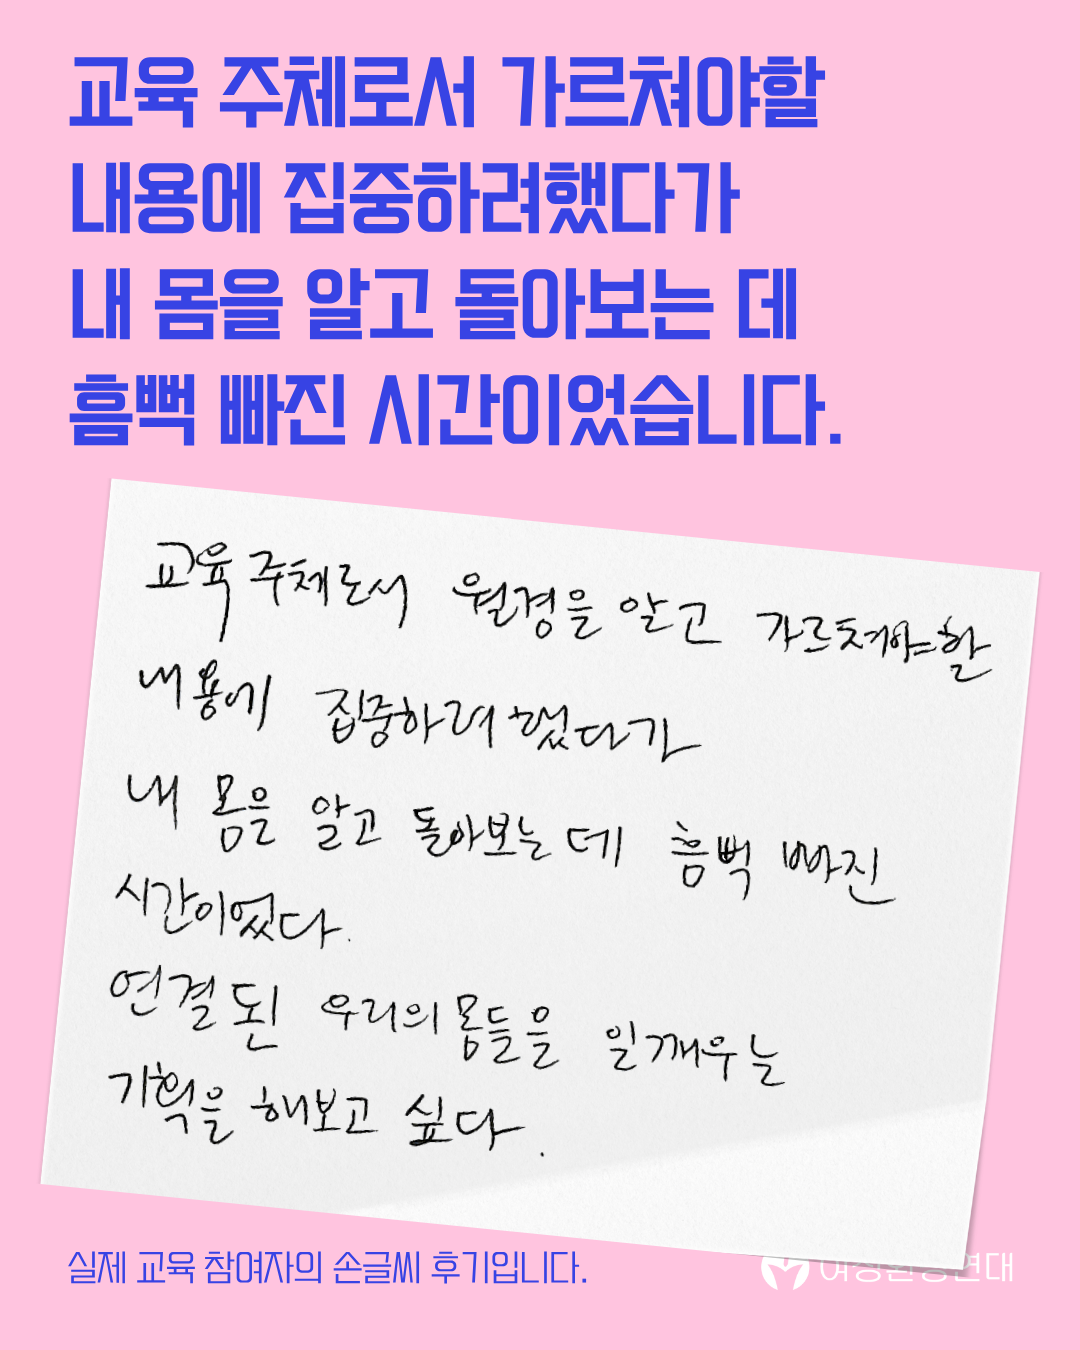 교육 주체로서 가르쳐야할
내용에 집중하려했다가
내 몸을 알고 돌아보는 데
흠뻑 빠진 시간이었습니다.
교육 주체로서 월경을 알고 가르쳐야할
내용에 집중하려했다가
내 몸을 알고 돌아보는데 흠뻑 빠진
시간이었다.
연결된 우리의 몸들을 일깨우는
기획을 해보고 싶다.
실제 교육 참여자의 손글씨 후기입니다.
여성환경연대